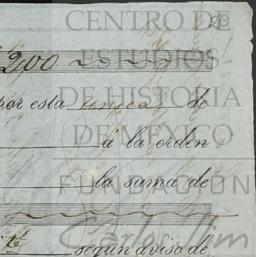 CENTRO DE
ESTUDIOS
DE HISTORIA
DE MEXICO
FUNDACION
Carlos Slim
200
por esta unica de
á la orden
la suma de
segun aviso de